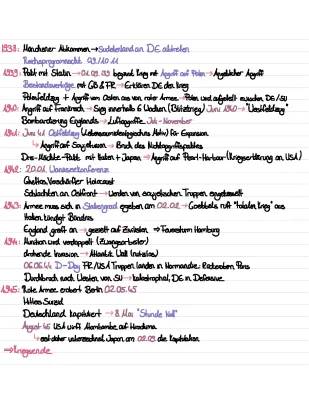 1938: Münchener Abkommen → Sudetenland an DE abtreten
Reichspogromnacht 09./10.11
1939: Pakt mit Stalin → 01.09.39 beginnt Krieg mit Angriff auf Polen → Angeblicher Angriff
Beistandsverträge mit GB & FR → Erklären DE den Krieg
Polenfeldzug + Angriff von Osten aus von roter Armee → Polen wird aufgeteilt zwischen DE/SU
1940: Angriff auf Frankreich → Sieg innerhalb 6 Wochen (Blitzkrieg) Juni 1940 → "Westfeldzug"
Bombardierung Englands → Luftangriffe Juli - November
1941: Juni 41 Ostfeldzug (Lebensraumideologisches Motiv) für Expansion
↳ Angriff auf Sowjetunion → Bruch des Nichtangriffspaktes
Drei-Mächte-Pakt mit Italien + Japan → Angriff auf Pearl-Harbour (Kriegserklärung an USA)
1942: 20.01. Wannseekonferenz
Holocaust
Schlachten an Ostfront → Werden von sowjetischen Truppen eingekesselt
1943: Armee muss sich in Stalingrad ergeben am 02.02 → Goebbels ruft "totalen Krieg" aus
Italien kündigt Bündnis
England greift an → gezielt auf Zivilisten ⇒ Feuersturm Hamburg
1944: Munition wird verdoppelt (Zwangsarbeiter)
drohende Invasion → Atlantik Wall
06.06.44 D-Day FR/USA Truppen landen in Normandie: Paris
Durchbruch nach Westen von SU → katastrophal, DE in Defensive
1945: Rote Armee erobert Berlin 02.05.45
Hitlers Suizid
Deutschland kapituliert → 8. Mai "Stunde Null"
August 45 USA wirft Atombombe auf Hiroshima
↳ erst daher unterzeichnet Japan am 02.09. die Kapitulation
⇒ Kriegsende